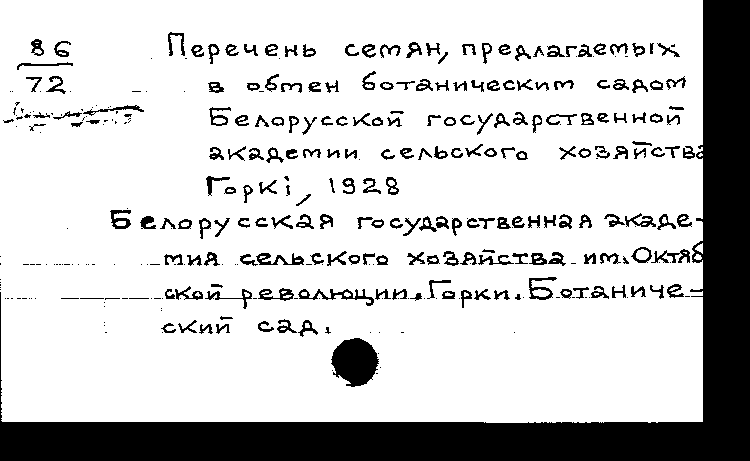 86
72
Перечень семян, предлагаемых
в обмен ботаническим садом
Белорусской государственной
академии сельского хозяйства
Горкі, 1928
Белорусская государственная акаде-
мия сельского хозяйства им. Октяб
ской революции. Горки. Ботаниче-
ский сад.